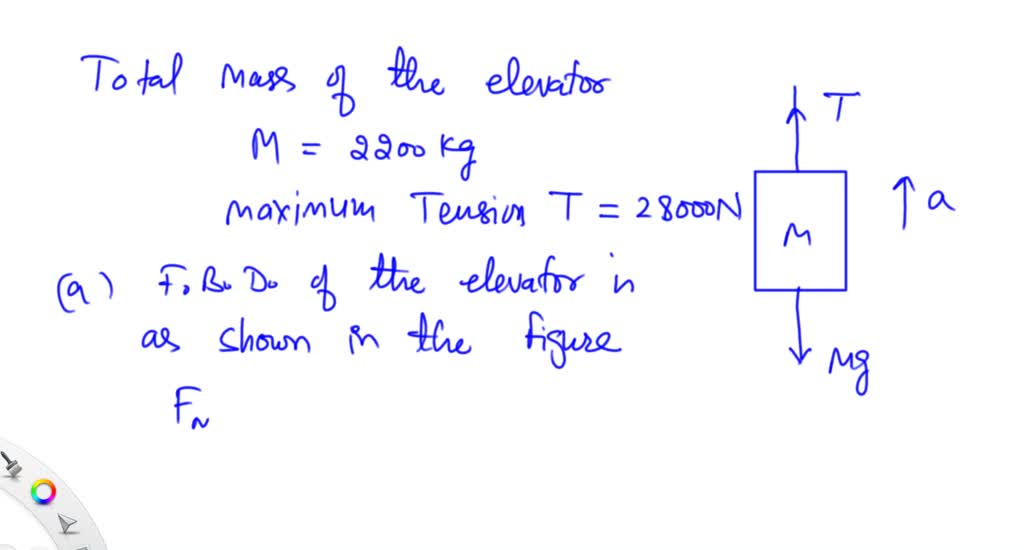 Total mass of the elevator
M = 2200 kg
maximum Tension T = 28000N
(a) F.B.D. of the elevator is
as shown in the figure
F
T
a
M
Mg